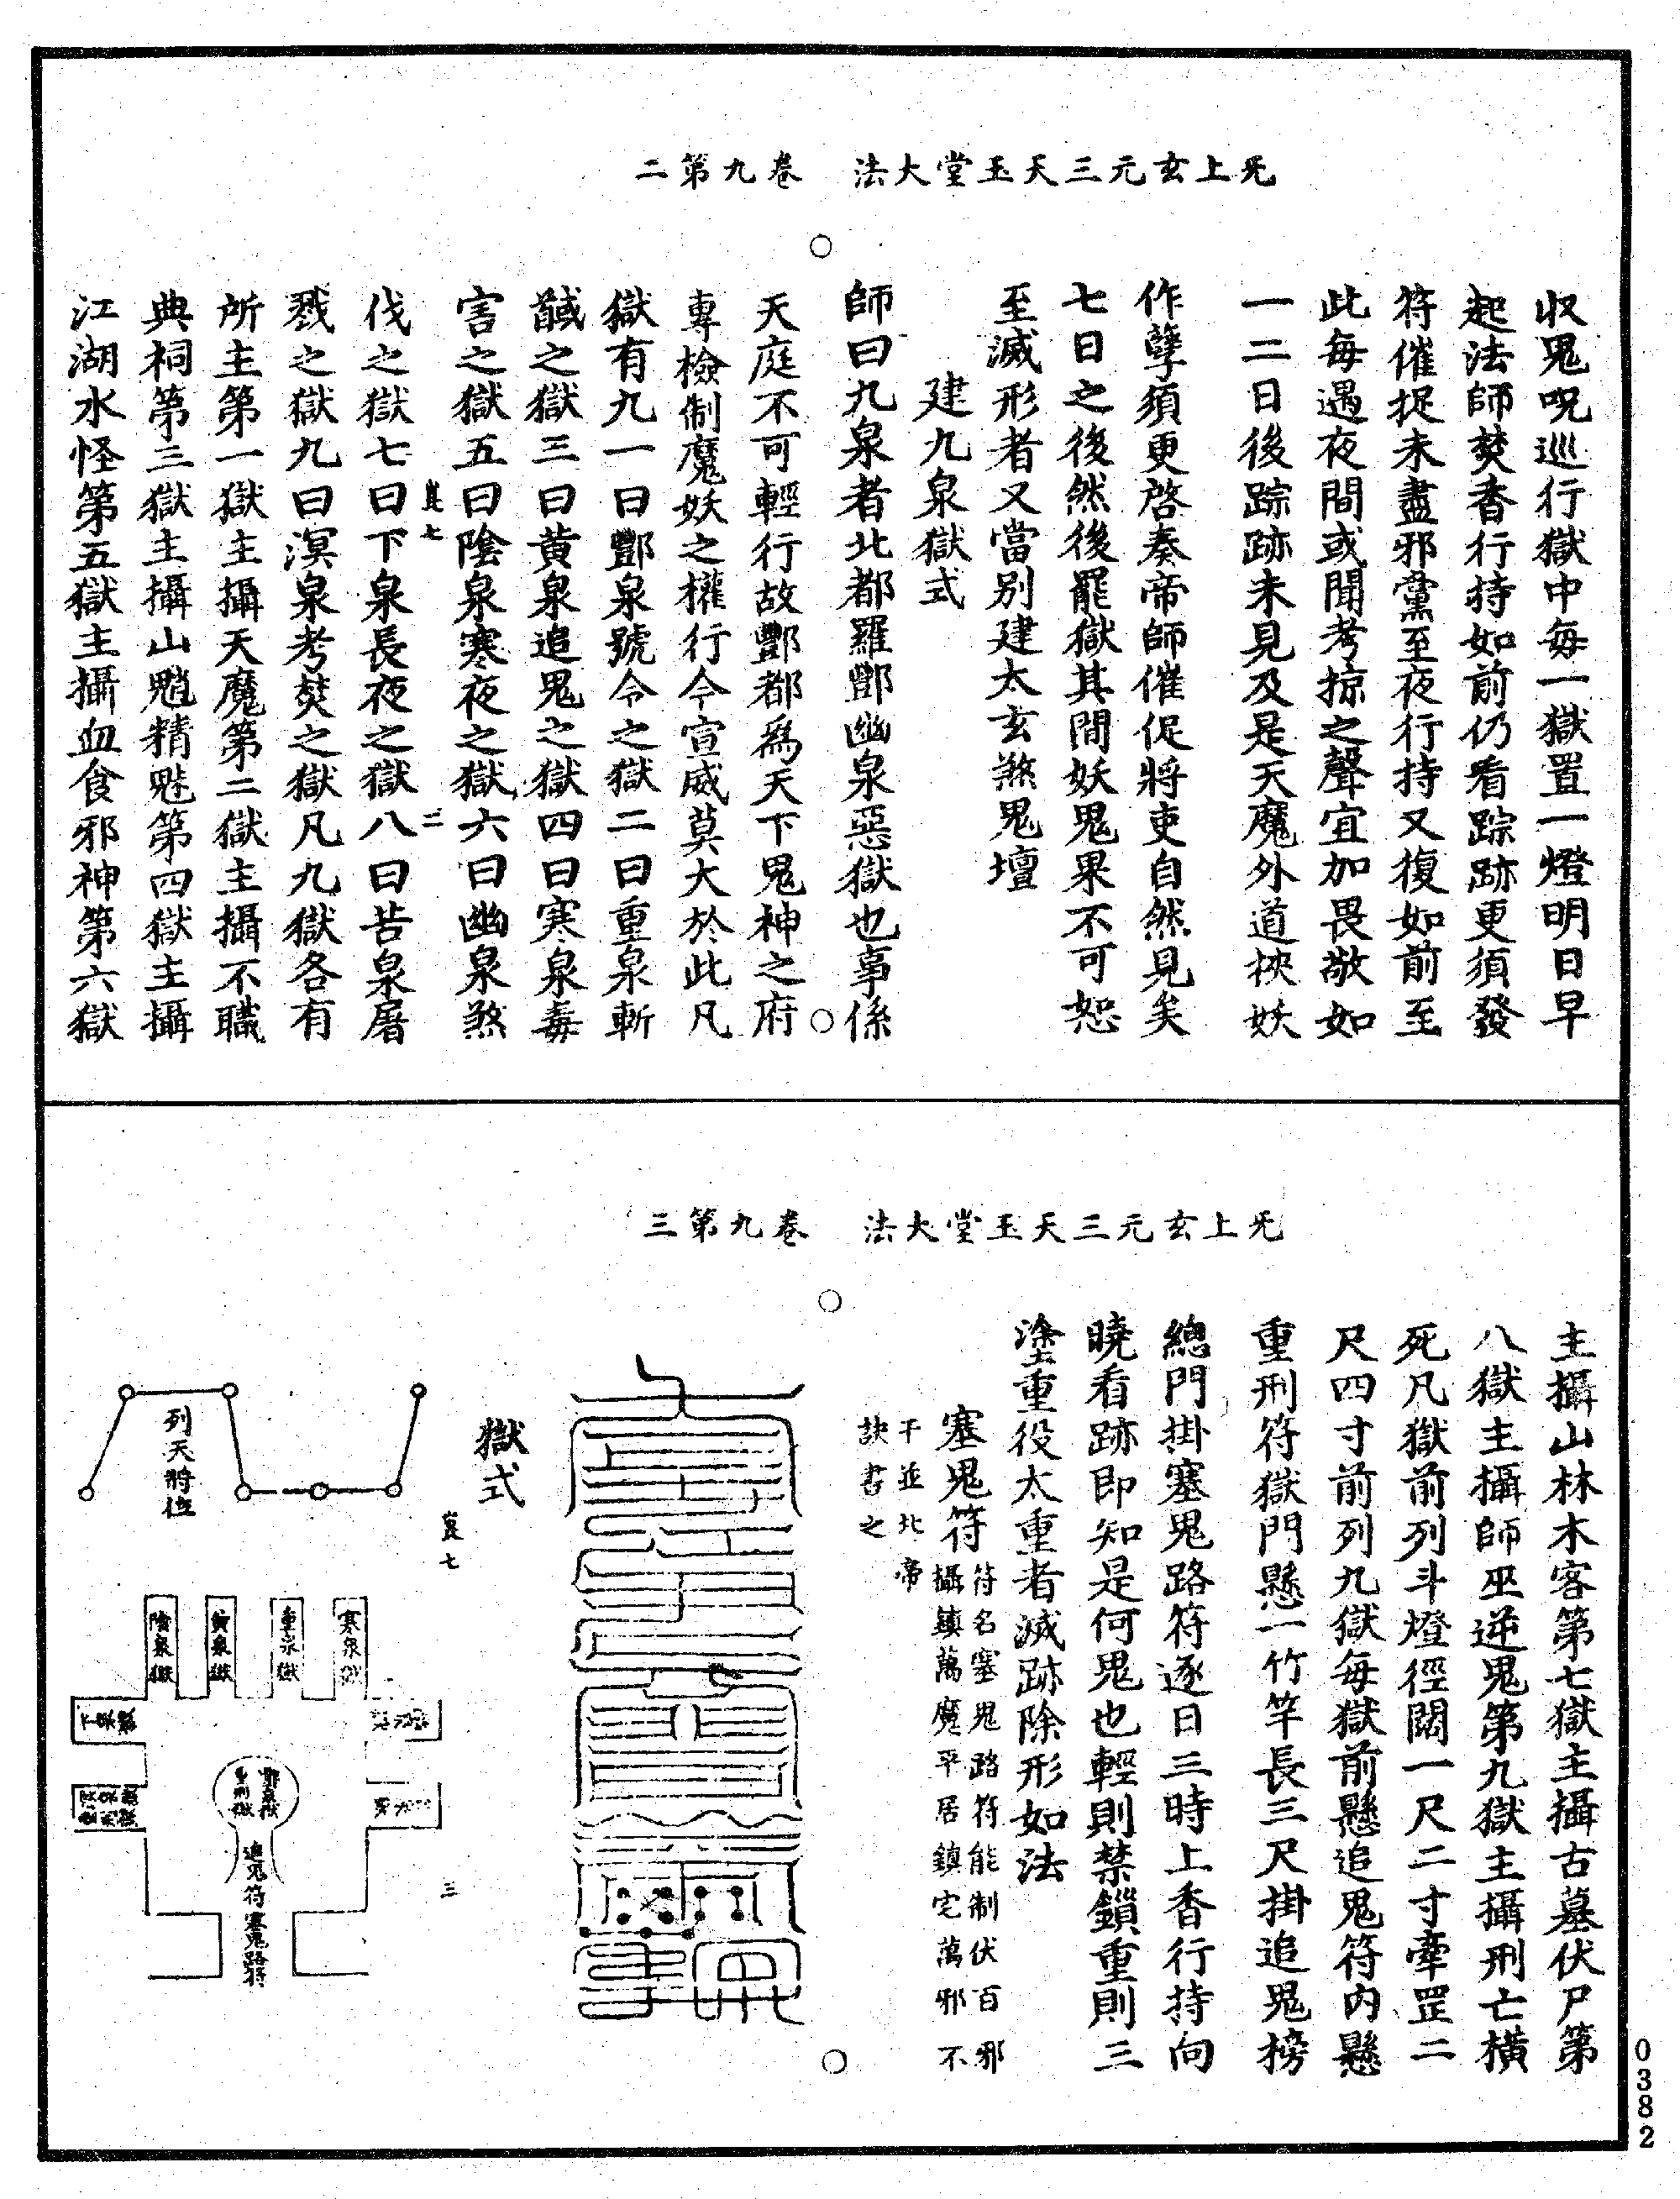 无上玄元三天玉堂大法　卷九第二
收鬼呪巡行獄中每一獄置一燈明日早
起法師焚香行持如前仍看踪跡更須發
符催捉未盡邪黨至夜行持又復如前至
此每遇夜間或聞考掠之聲宜加畏敬如
一二日後踪跡未見及是天魔外道挾妖
作孽須更啓奏帝師催促將吏自然見矣
七日之後然後罷獄其間妖鬼果不可恕
至滅形者又當别建太玄煞鬼壇
建九泉獄式
師曰九泉者北都羅酆幽泉惡獄也事係
天庭不可輕行故酆都爲天下鬼神之府
專檢制魔妖之權行令宣威莫大於此凡
獄有九一曰酆泉號令之獄二曰重泉斬
馘之獄三曰黄泉追鬼之獄四曰寒泉毒
害之獄五曰陰泉寒夜之獄六曰幽泉煞
伐之獄七曰下泉長夜之獄八曰苦泉屠
戮之獄九曰溟泉考焚之獄凡九獄各有
所主第一獄主攝天魔第二獄主攝不職
典祠第三獄主攝山魈精魅第四獄主攝
江湖水怪第五獄主攝血食邪神第六獄
无上玄元三天玉堂大法　卷九第三
主攝山林木客第七獄主攝古墓伏尸第
八獄主攝師巫逆鬼第九獄主攝刑亡横
死凡獄前列斗燈徑闊一尺二寸牽罡二
尺四寸前列九獄每獄前懸追鬼符内懸
重刑符獄門懸一竹竿長三尺掛追鬼榜
總門掛塞鬼路符逐日三時上香行持向
曉看跡即知是何鬼也輕則禁鎖重則三
塗重役太重者滅跡除形如法
塞鬼符
符名塞鬼路符能制伏百邪
攝鎮萬魔平居鎮宅萬邪不
干並北帝
訣書之
獄式
七
三
列天將位
寒泉獄
重泉獄
黄泉獄
陰泉獄
追鬼符
塞鬼路符
0382